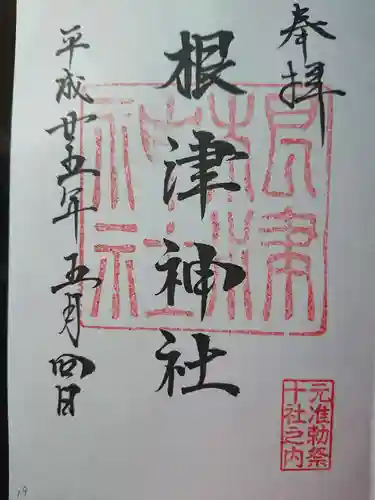 奉拝
根津神社
平成廿五年五月四日
元准勅祭
十社之内
19